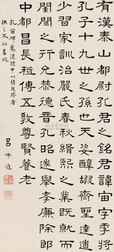 有漢泰山都尉孔君之銘君諱宙字季將
孔子十九世之孫也天姿醇嘏齊聖達道
少習家訓治嚴氏春秋緝熙之業既就而
閨閫之行允恭德音孔昭遂舉孝廉除郎
中都昌長祗傳五教尊賢養老
孔宙碑